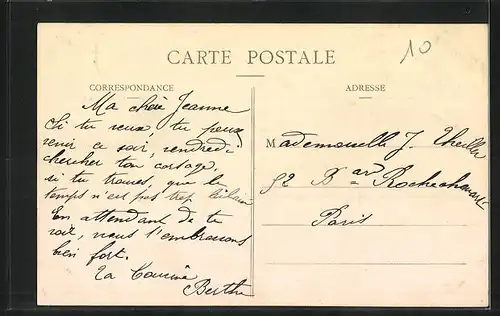 10
CARTE POSTALE
CORRESPONDANCE
ADRESSE
Ma chère Jeanne
Si tu veux, tu peux
venir ce soir, vendredi
chercher ton corsage,
si tu trouves, que le
temps n'est pas trop
En attendant de te
voir, nous t'embrassons
bien fort.
Ta Cousine
Berthe
Mademoiselle J.
92 Bard Rochechouart
Paris